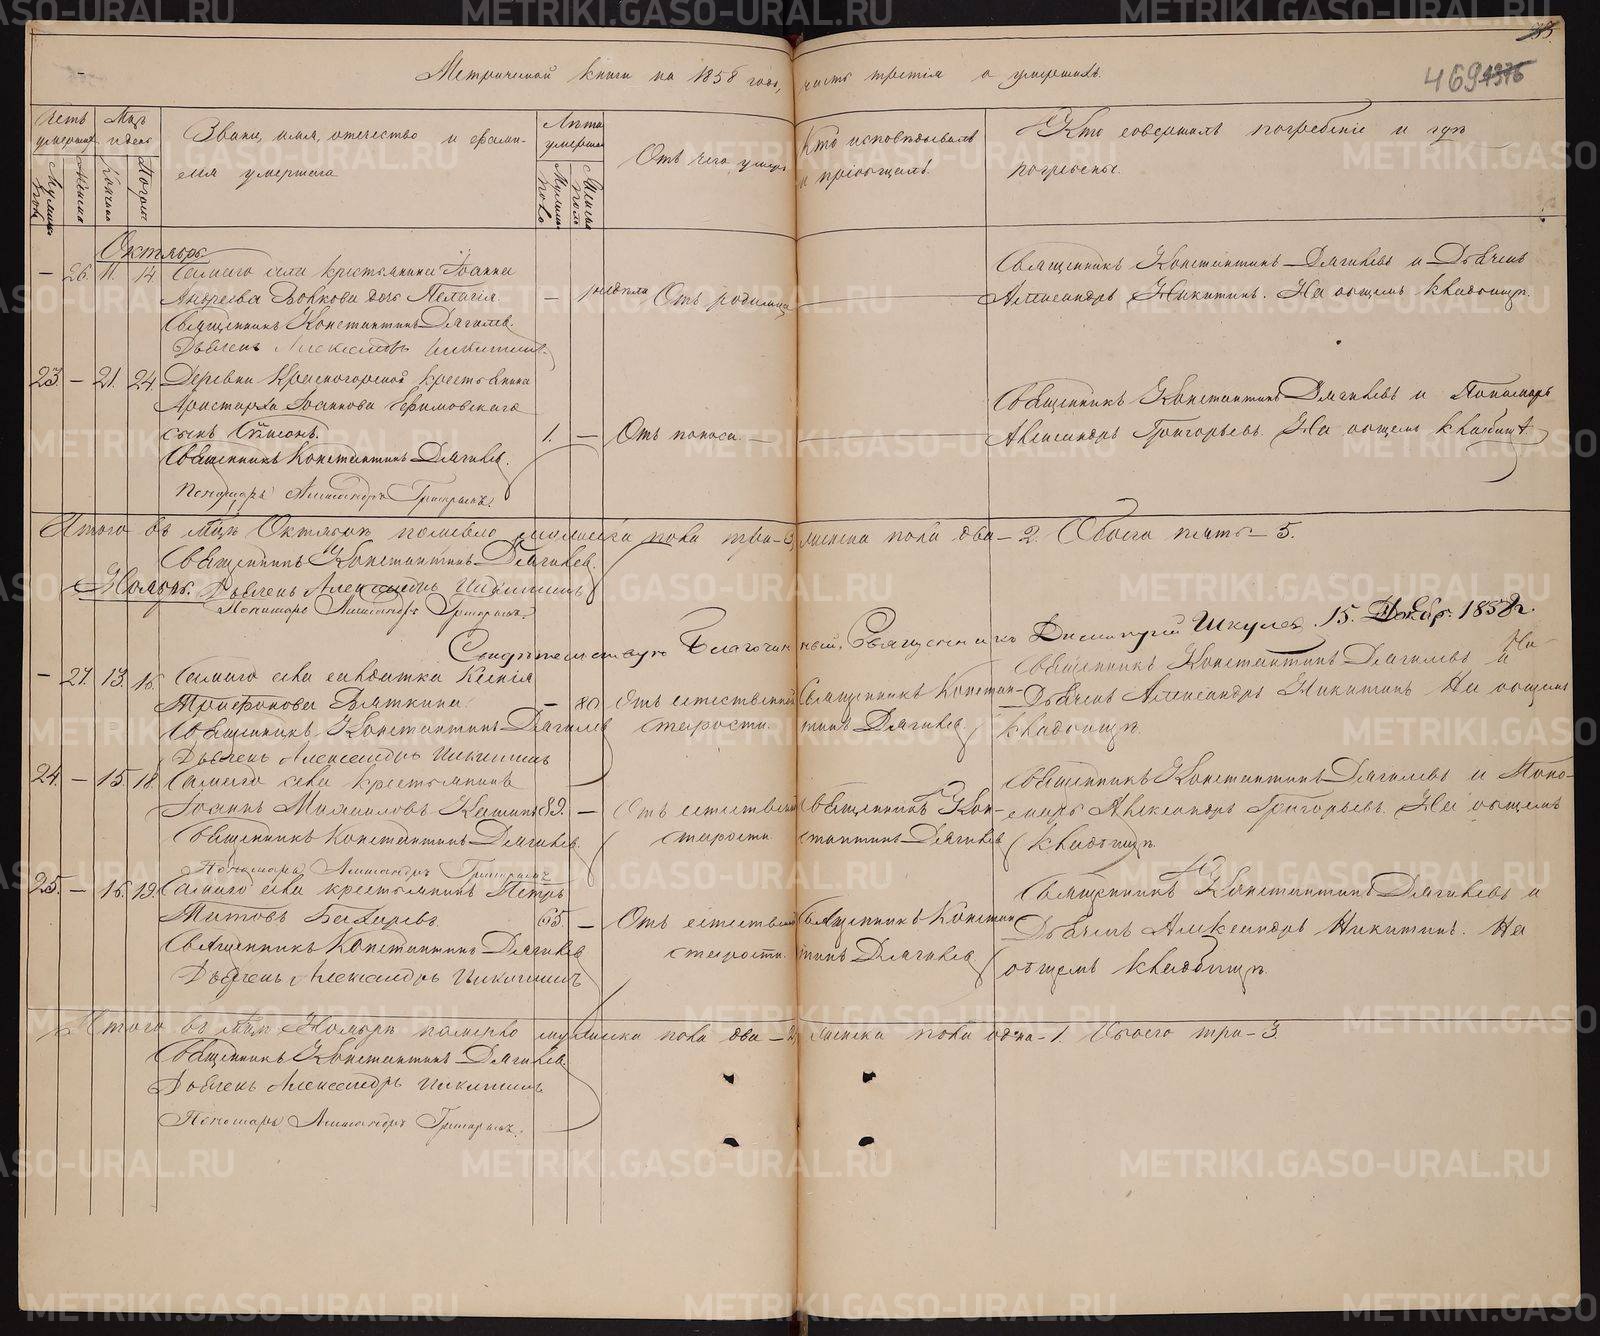 Метрической книги на 1858 годъ, часть третія о умершихъ.
469
Счетъ умершихъ
Мужеска
Женска
Мѣс. и день
Кончины
Погреб.
Званіе, имя, отечество и фамилія умершаго
Лѣта умершаго
Мужеск. пола
Женска пола
Отъ чего умеръ
Кто исповѣдывалъ и пріобщалъ.
Кто совершалъ погребеніе и гдѣ погребены.
Октябрь
— 26. 11. 14. Тамаго села крестьянина Іоанна
Андреева дочь Пелагія. — недѣли Отъ родимца
Священникъ Константинъ Дягилевъ.
Дьячекъ Александръ Никитинъ.
Священникъ Константинъ Дягилевъ и Дьячекъ
Александръ Никитинъ. На общемъ кладбищѣ.
23. — 21. 24. Деревни Красногорской крестьянина
Аристарха Іоаннова Ефимовскаго
сынъ Симеонъ. 1. — Отъ поноса. —
Священникъ Константинъ Дягилевъ.
Пономарь Александръ Григорьевъ.
Священникъ Константинъ Дягилевъ и Пономарь
Александръ Григорьевъ. На общемъ кладбищѣ
Итого въ мѣс. Октябрѣ померло мужеска пола три – 3, женска пола два – 2. Обоего пять – 5.
Священникъ Константинъ Дягилевъ.
Ноябрь. Дьячекъ Александръ Никитинъ
Пономарь Александръ Григорьевъ.
Свидѣтельствую Благочинный, Священникъ Димитрій Шкулевъ. 15. Декабр. 1858 г.
— 27. 13. 16. Тамаго села солдатка Ксенія
Трифонова Вяткина. — 80 Отъ естественной старости.
Священникъ Константинъ Дягилевъ
Дьячекъ Александръ Никитинъ
Священникъ Константинъ Дягилевъ
Священникъ Константинъ Дягилевъ и
Дьячекъ Александръ Никитинъ На общемъ
кладбищѣ.
24. — 15. 18. Тамаго села крестьянинъ
Іоаннъ Михаиловъ 89. — Отъ естествен. старости.
Священникъ Константинъ Дягилевъ.
Пономарь Александръ Григорьевъ
Священникъ Константинъ Дягилевъ
Священникъ Константинъ Дягилевъ и Поно-
марь Александръ Григорьевъ. На общемъ
кладбищѣ.
25. — 16. 19. Тамаго села крестьянинъ Петръ
Титовъ 65. — Отъ естествен. старости.
Священникъ Константинъ Дягилевъ
Дьячекъ Александръ Никитинъ
Священникъ Константинъ Дягилевъ
Священникъ Константинъ Дягилевъ и
Дьячекъ Александръ Никитинъ. На
общемъ кладбищѣ.
Итого въ мѣс. Ноябрѣ померло мужеска пола два – 2, женска пола одна – 1. Обоего три – 3.
Священникъ Константинъ Дягилевъ.
Дьячекъ Александръ Никитинъ
Пономарь Александръ Григорьевъ.
METRIKI.GASO-URAL.RU